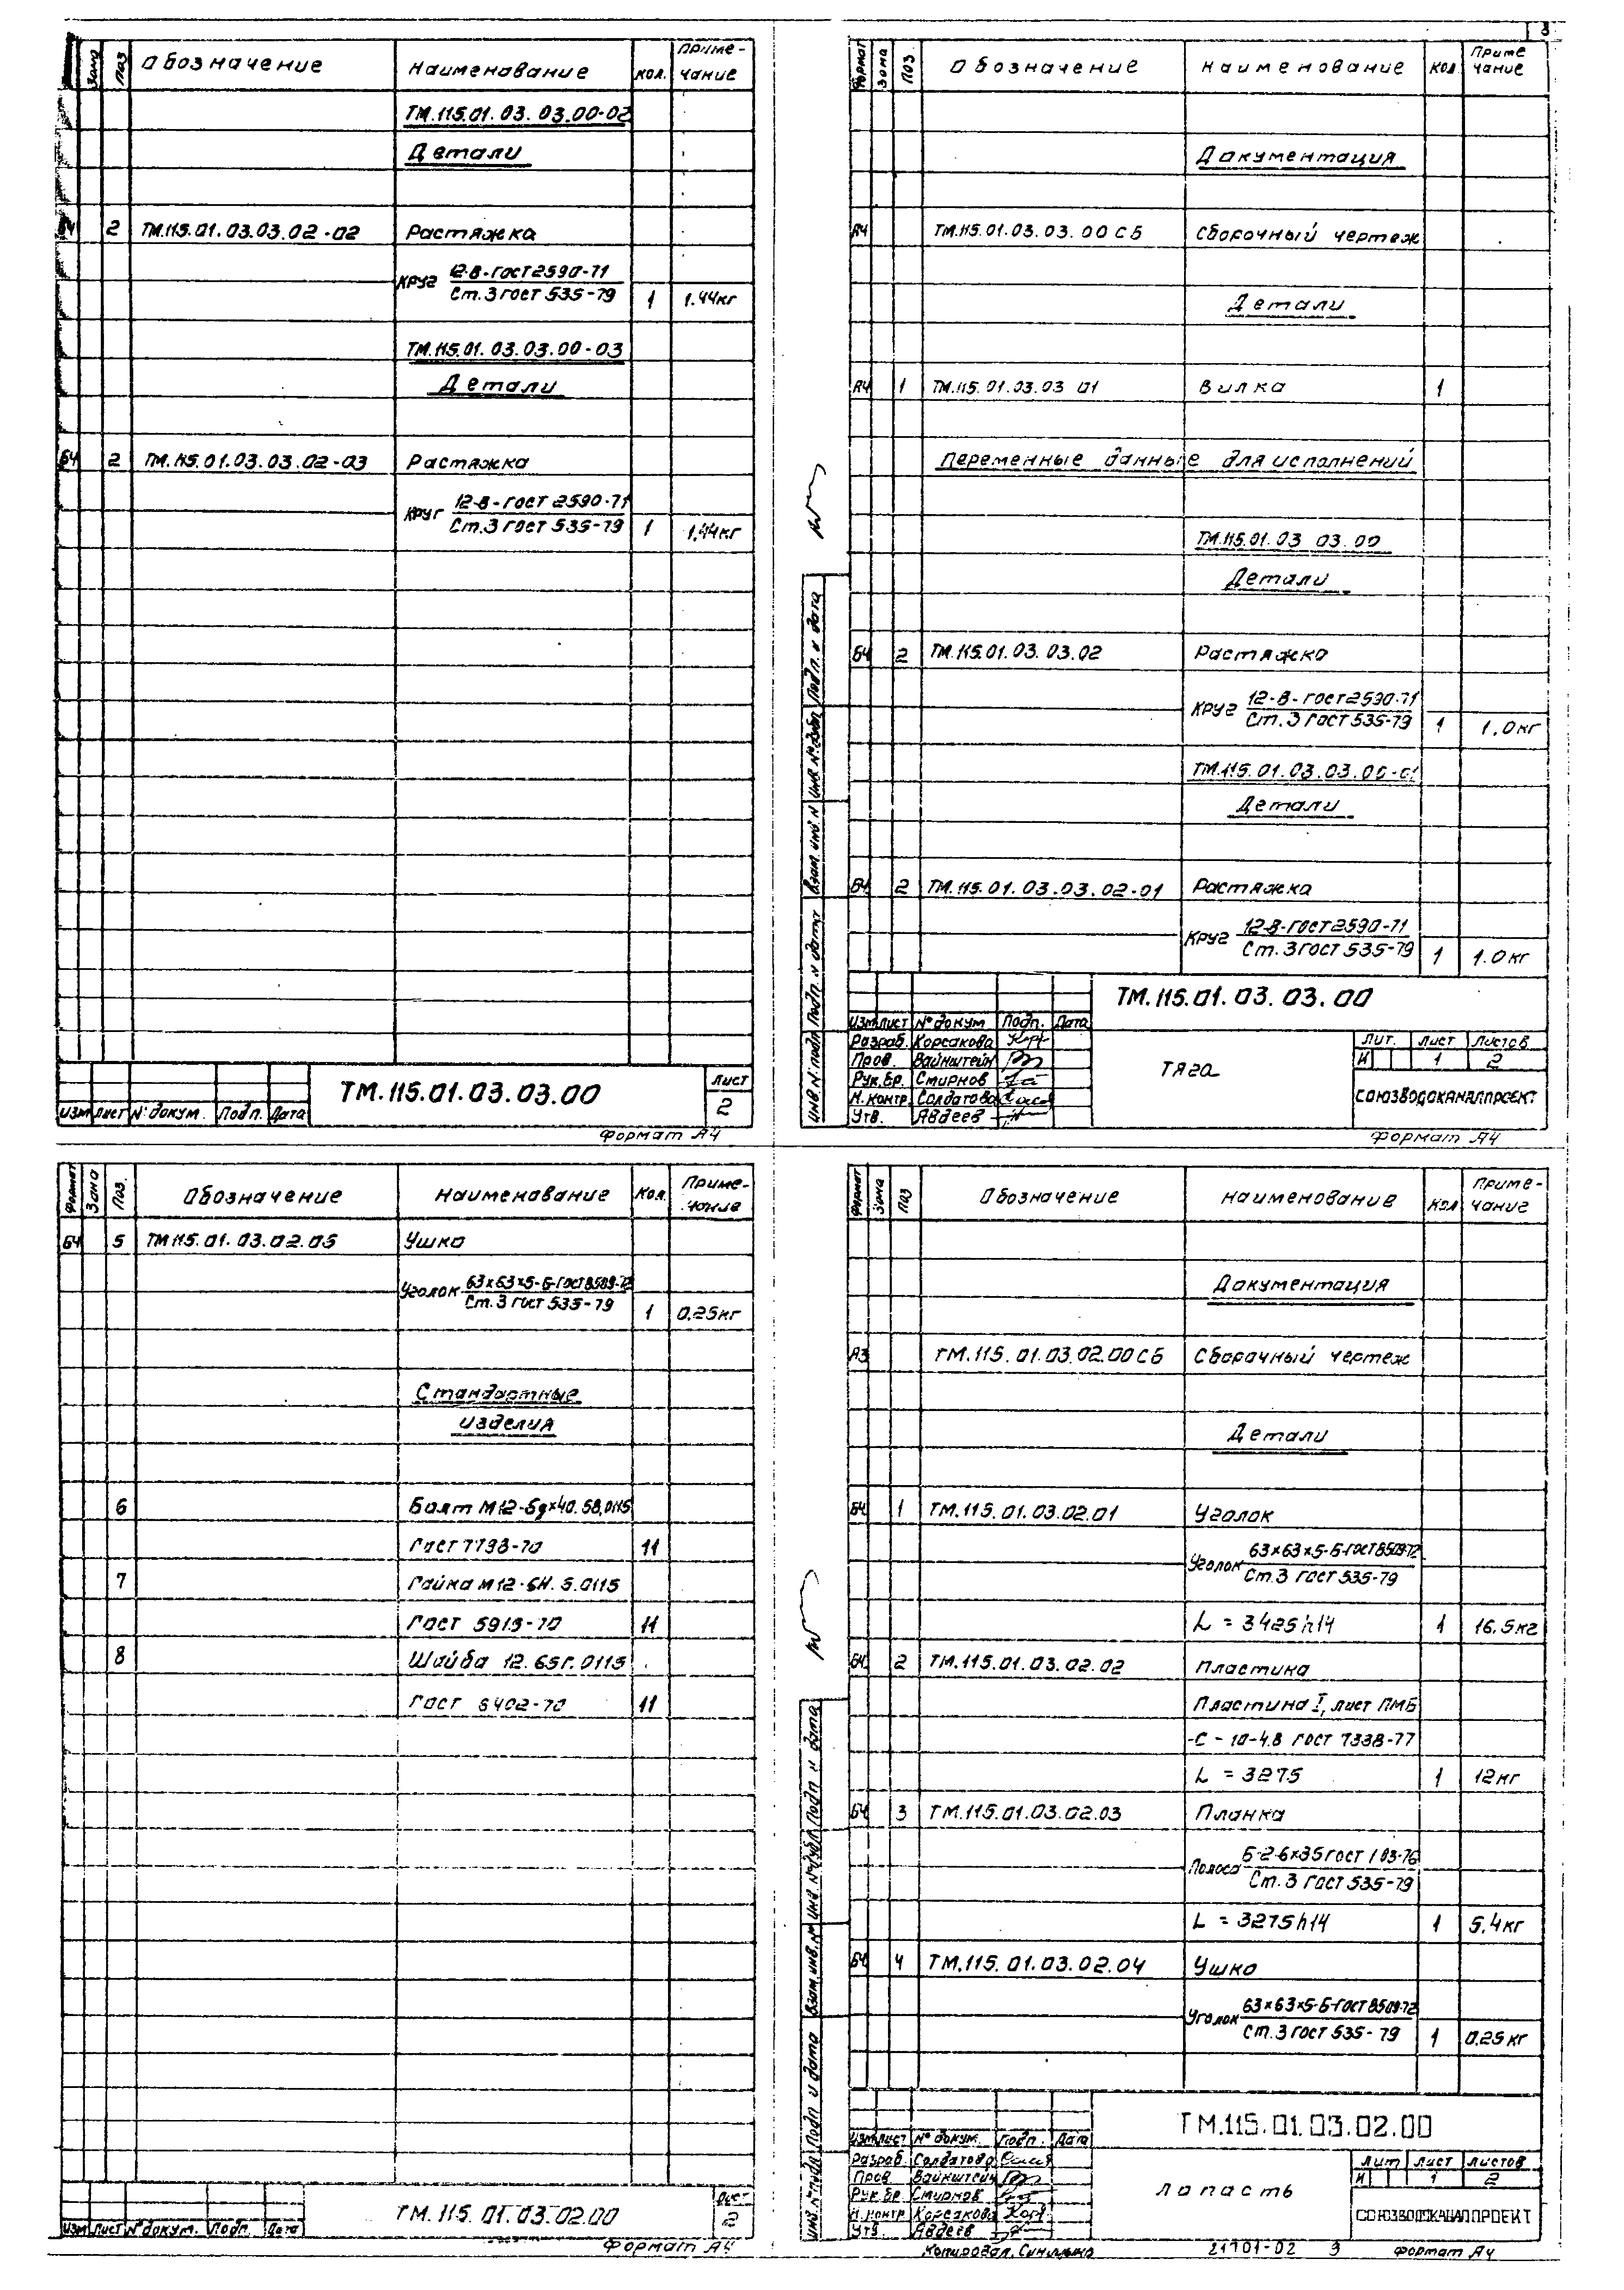 3
Зона Поз Обозначение Наименование Кол. Приме-
чание
ТМ.115.01.03.03.00-02
Детали
БЧ 2 ТМ.115.01.03.03.02-02 Растяжка
Круг 12-В-ГОСТ 2590-71
Ст.3 ГОСТ 535-79 1 1.44кг
ТМ.115.01.03.03.00-03
Детали
БЧ 2 ТМ.115.01.03.03.02-03 Растяжка
Круг 12-В-ГОСТ 2590-71
Ст.3 ГОСТ 535-79 1 1,44кг
ТМ.115.01.03.03.00
Лист
2
Изм Лист № докум. Подп. Дата
Формат А4
Формат Зона Поз Обозначение Наименование Кол Приме
чание
Документация
А4 ТМ.115.01.03.03.00 СБ Сборочный чертеж
Детали
А4 1 ТМ.115.01.03.03 01 Вилка 1
Переменные данные для исполнений
ТМ.115.01.03 03.00
Детали
БЧ 2 ТМ.115.01.03.03.02 Растяжка
Круг 12-В-ГОСТ 2590-71
Ст.3 ГОСТ 535-79 1 1.0кг
ТМ.115.01.03.03.00-01
Детали
БЧ 2 ТМ.115.01.03.03.02-01 Растяжка
Круг 12-В-ГОСТ 2590-71
Ст.3 ГОСТ 535-79 1 1.0кг
Инв. № подл Подп. и дата Взам. инв. № Инв. № дубл Подп. и дата
ТМ.115.01.03.03.00
Изм Лист № докум Подп. Дата
Разраб. Корсакова
Пров. Вайнштейн
Рук.бр. Смирнов
Н.контр. Солдатова
Утв. Авдеев
Тяга
Лит. Лист Листов
И 1 2
СОЮЗВОДОКАНАЛПРОЕКТ
Формат А4
Формат Зона Поз. Обозначение Наименование Кол. Приме-
чание
БЧ 5 ТМ 115.01.03.02.05 Ушко
Уголок 63х63х5-Б-ГОСТ 8509-72
Ст.3 ГОСТ 535-79 1 0.25кг
Стандартные
изделия
6 Болт М12-6gх40.58.0115
ГОСТ 7798-70 11
7 Гайка М12-6Н.5.0115
ГОСТ 5915-70 11
8 Шайба 12.65Г.0115
ГОСТ 6402-70 11
ТМ.115.01.03.02.00
Лист
2
Изм Лист № докум. Подп. Дата
Формат А4
Формат Зона Поз Обозначение Наименование Кол Приме-
чание
Документация
А3 ТМ.115.01.03.02.00 СБ Сборочный чертеж
Детали
БЧ 1 ТМ.115.01.03.02.01 Уголок
Уголок 63х63х5-Б-ГОСТ 8509-72
Ст.3 ГОСТ 535-79
L = 3425h14 1 16.5кг
БЧ 2 ТМ.115.01.03.02.02 Пластина
Пластина I, лист ПМБ
-С-10-4.8 ГОСТ 7338-77
L = 3275 1 12кг
БЧ 3 ТМ.115.01.03.02.03 Планка
Полоса Б-2-6х35 ГОСТ 103-76
Ст.3 ГОСТ 535-79
L = 3275h14 1 5.4кг
БЧ 4 ТМ.115.01.03.02.04 Ушко
Уголок 63х63х5-Б-ГОСТ 8509-72
Ст.3 ГОСТ 535-79 1 0.25кг
Инв. № подл Подп и дата Взам. инв. № Инв № дубл Подп и дата
ТМ.115.01.03.02.00
Изм Лист № докум. Подп. Дата
Разраб. Солдатова
Пров Вайнштейн
Рук.бр. Смирнов
Н.контр Корсакова
Утв. Авдеев
Лопасть
Лит Лист Листов
И 1 2
СОЮЗВОДОКАНАЛПРОЕКТ
Копировал. 21701-02 3 Формат А4